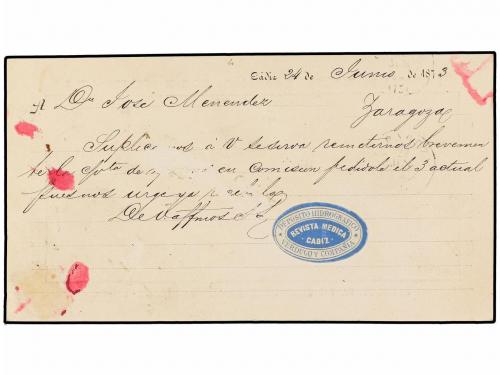 Cádiz 24 de Junio de 1873
A Dn José Menendez
Zaragoza
Suplicamos á V se sirva remitirnos brevemen
te la en comision pedida el 3 actual
pues nos urge ya
De V affmos
DEPOSITO HIDROGRAFICO
REVISTA MEDICA
-CADIZ-
VERDUGO Y COMPAÑIA